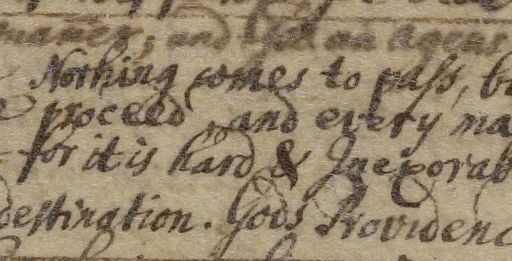 Nothing comes to pass, b
proceed and every ma
for it is hard & Inexorab
destination. Gods Providenc